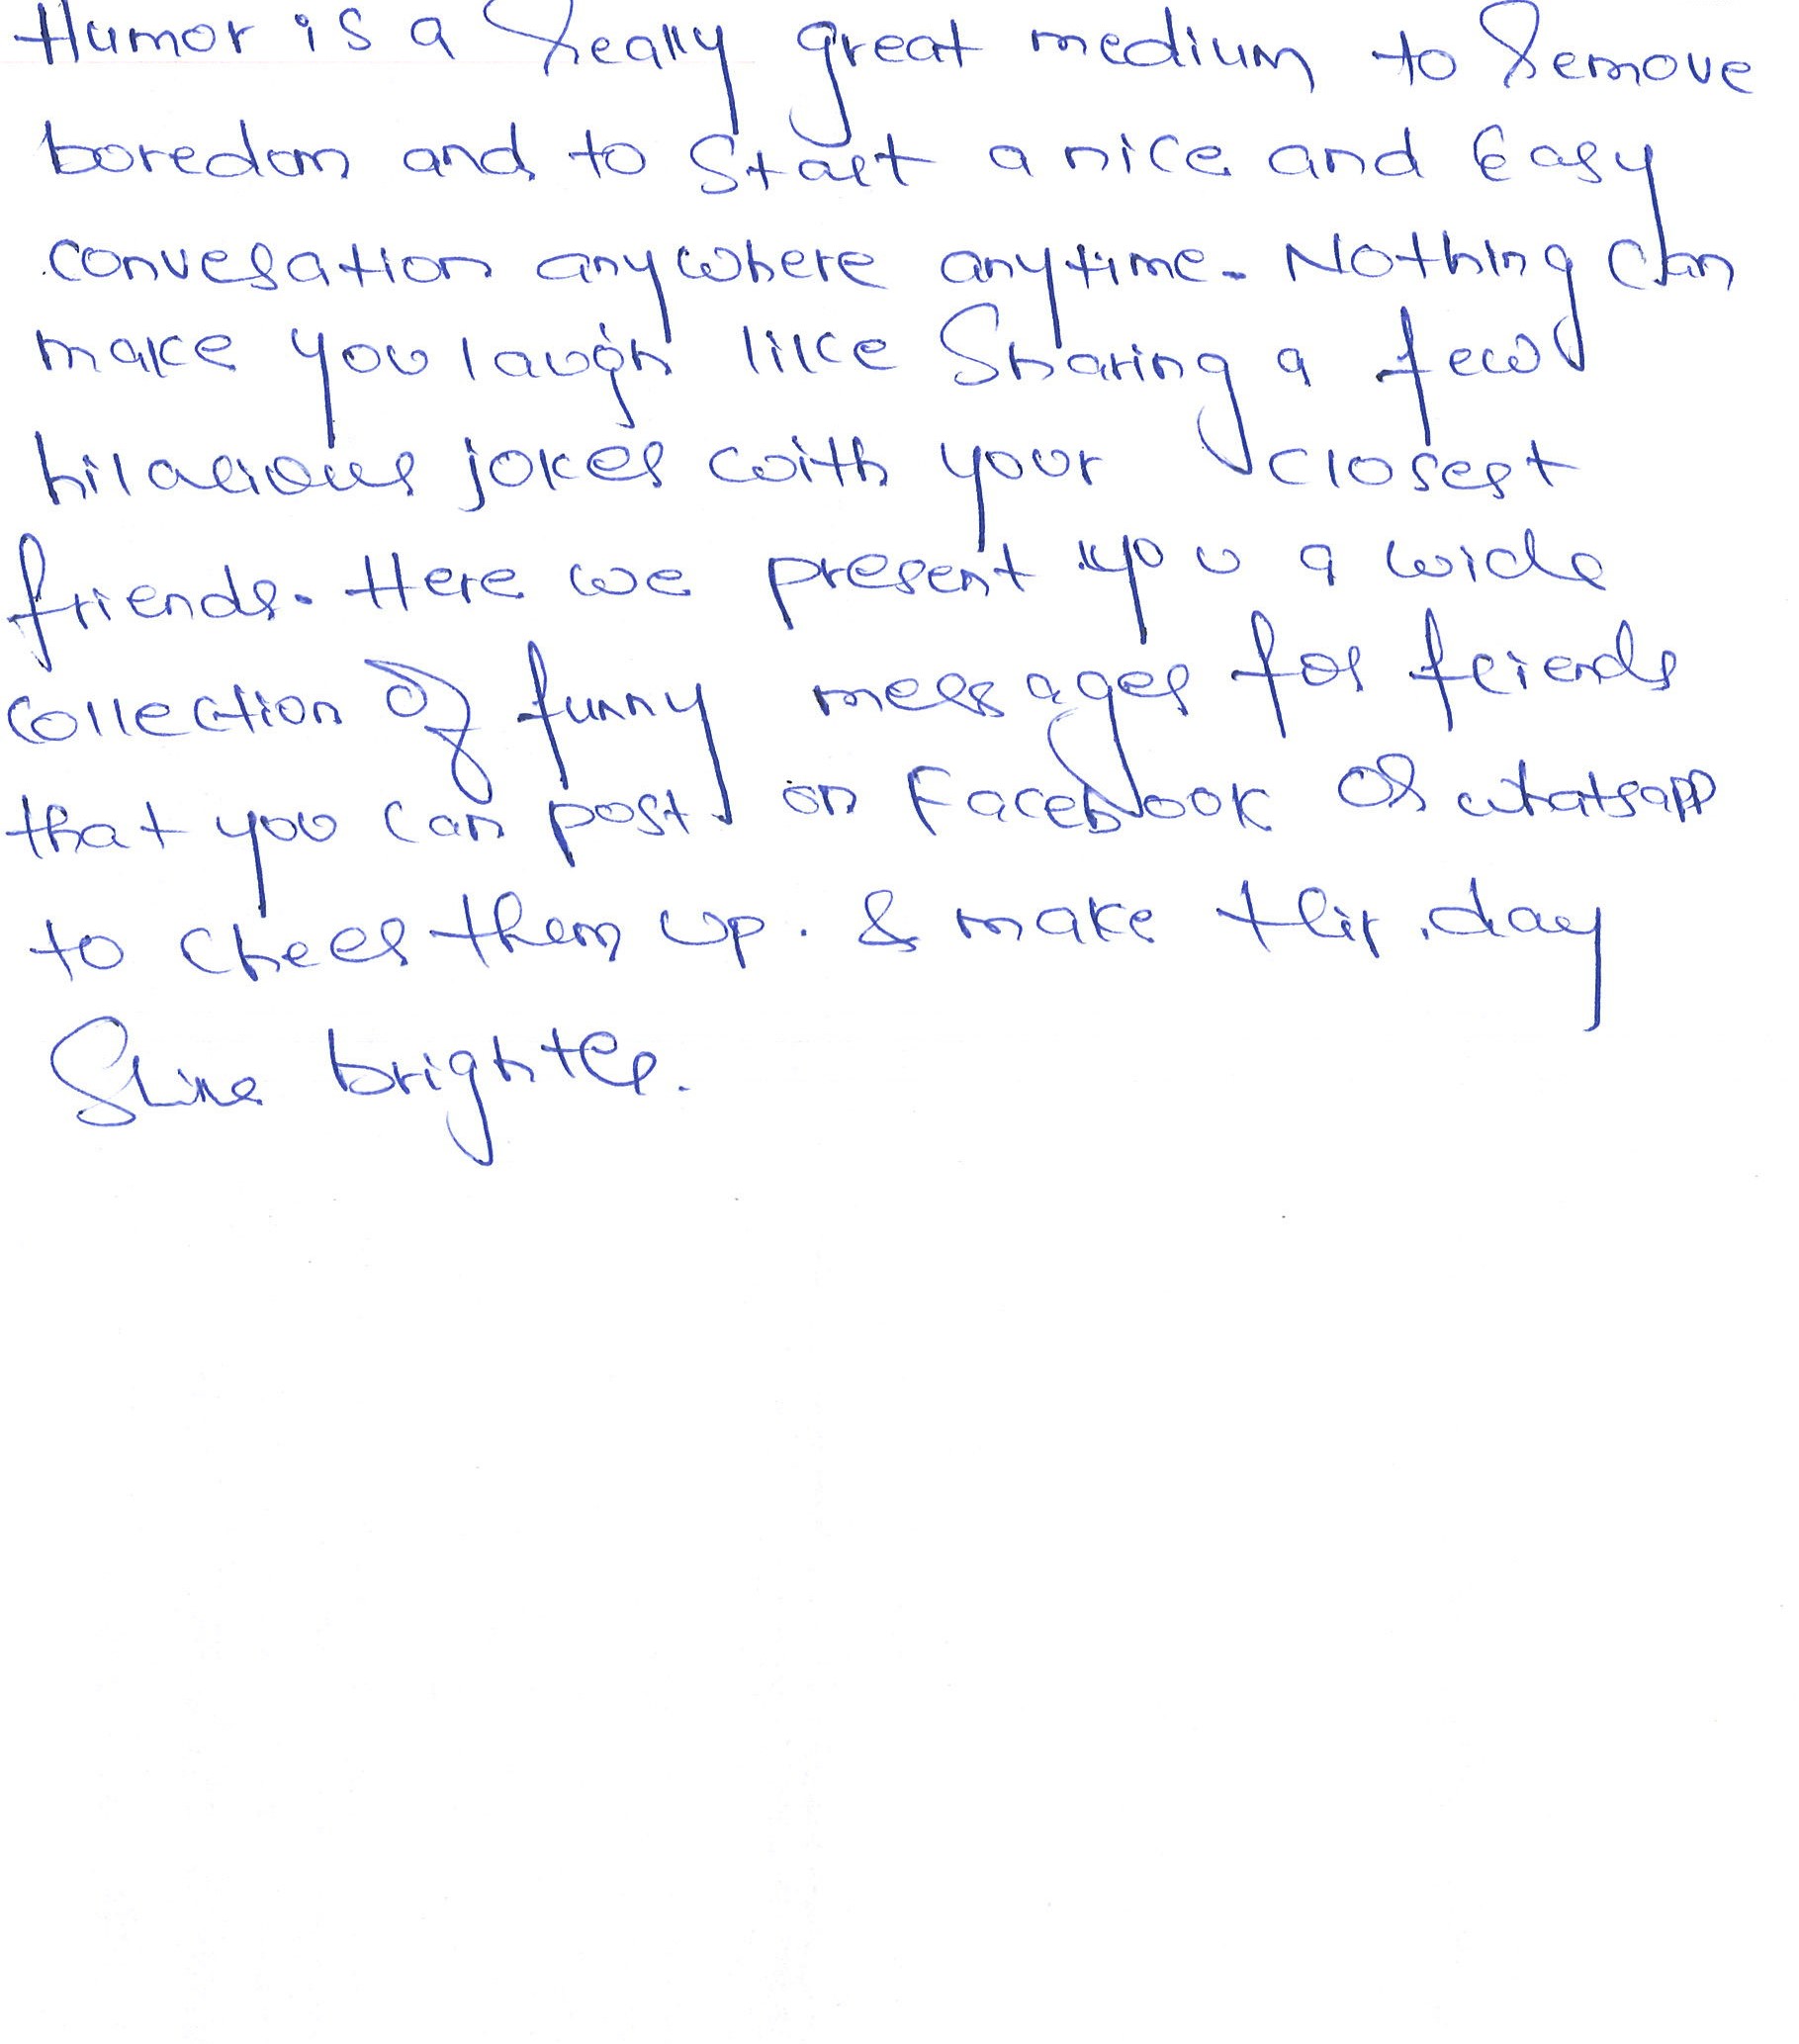 Humor is a really great medium to remove
boredom and to start a nice and Easy
convesation anywhere anytime. Nothing can
make you laugh like Sharing a few
hilarious jokes with your closest
friends. Here we present you a wide
collection of funny messages for friends
that you can post on Facebook or whatsapp
to cheer them up. & make thir day
Shine brighter.